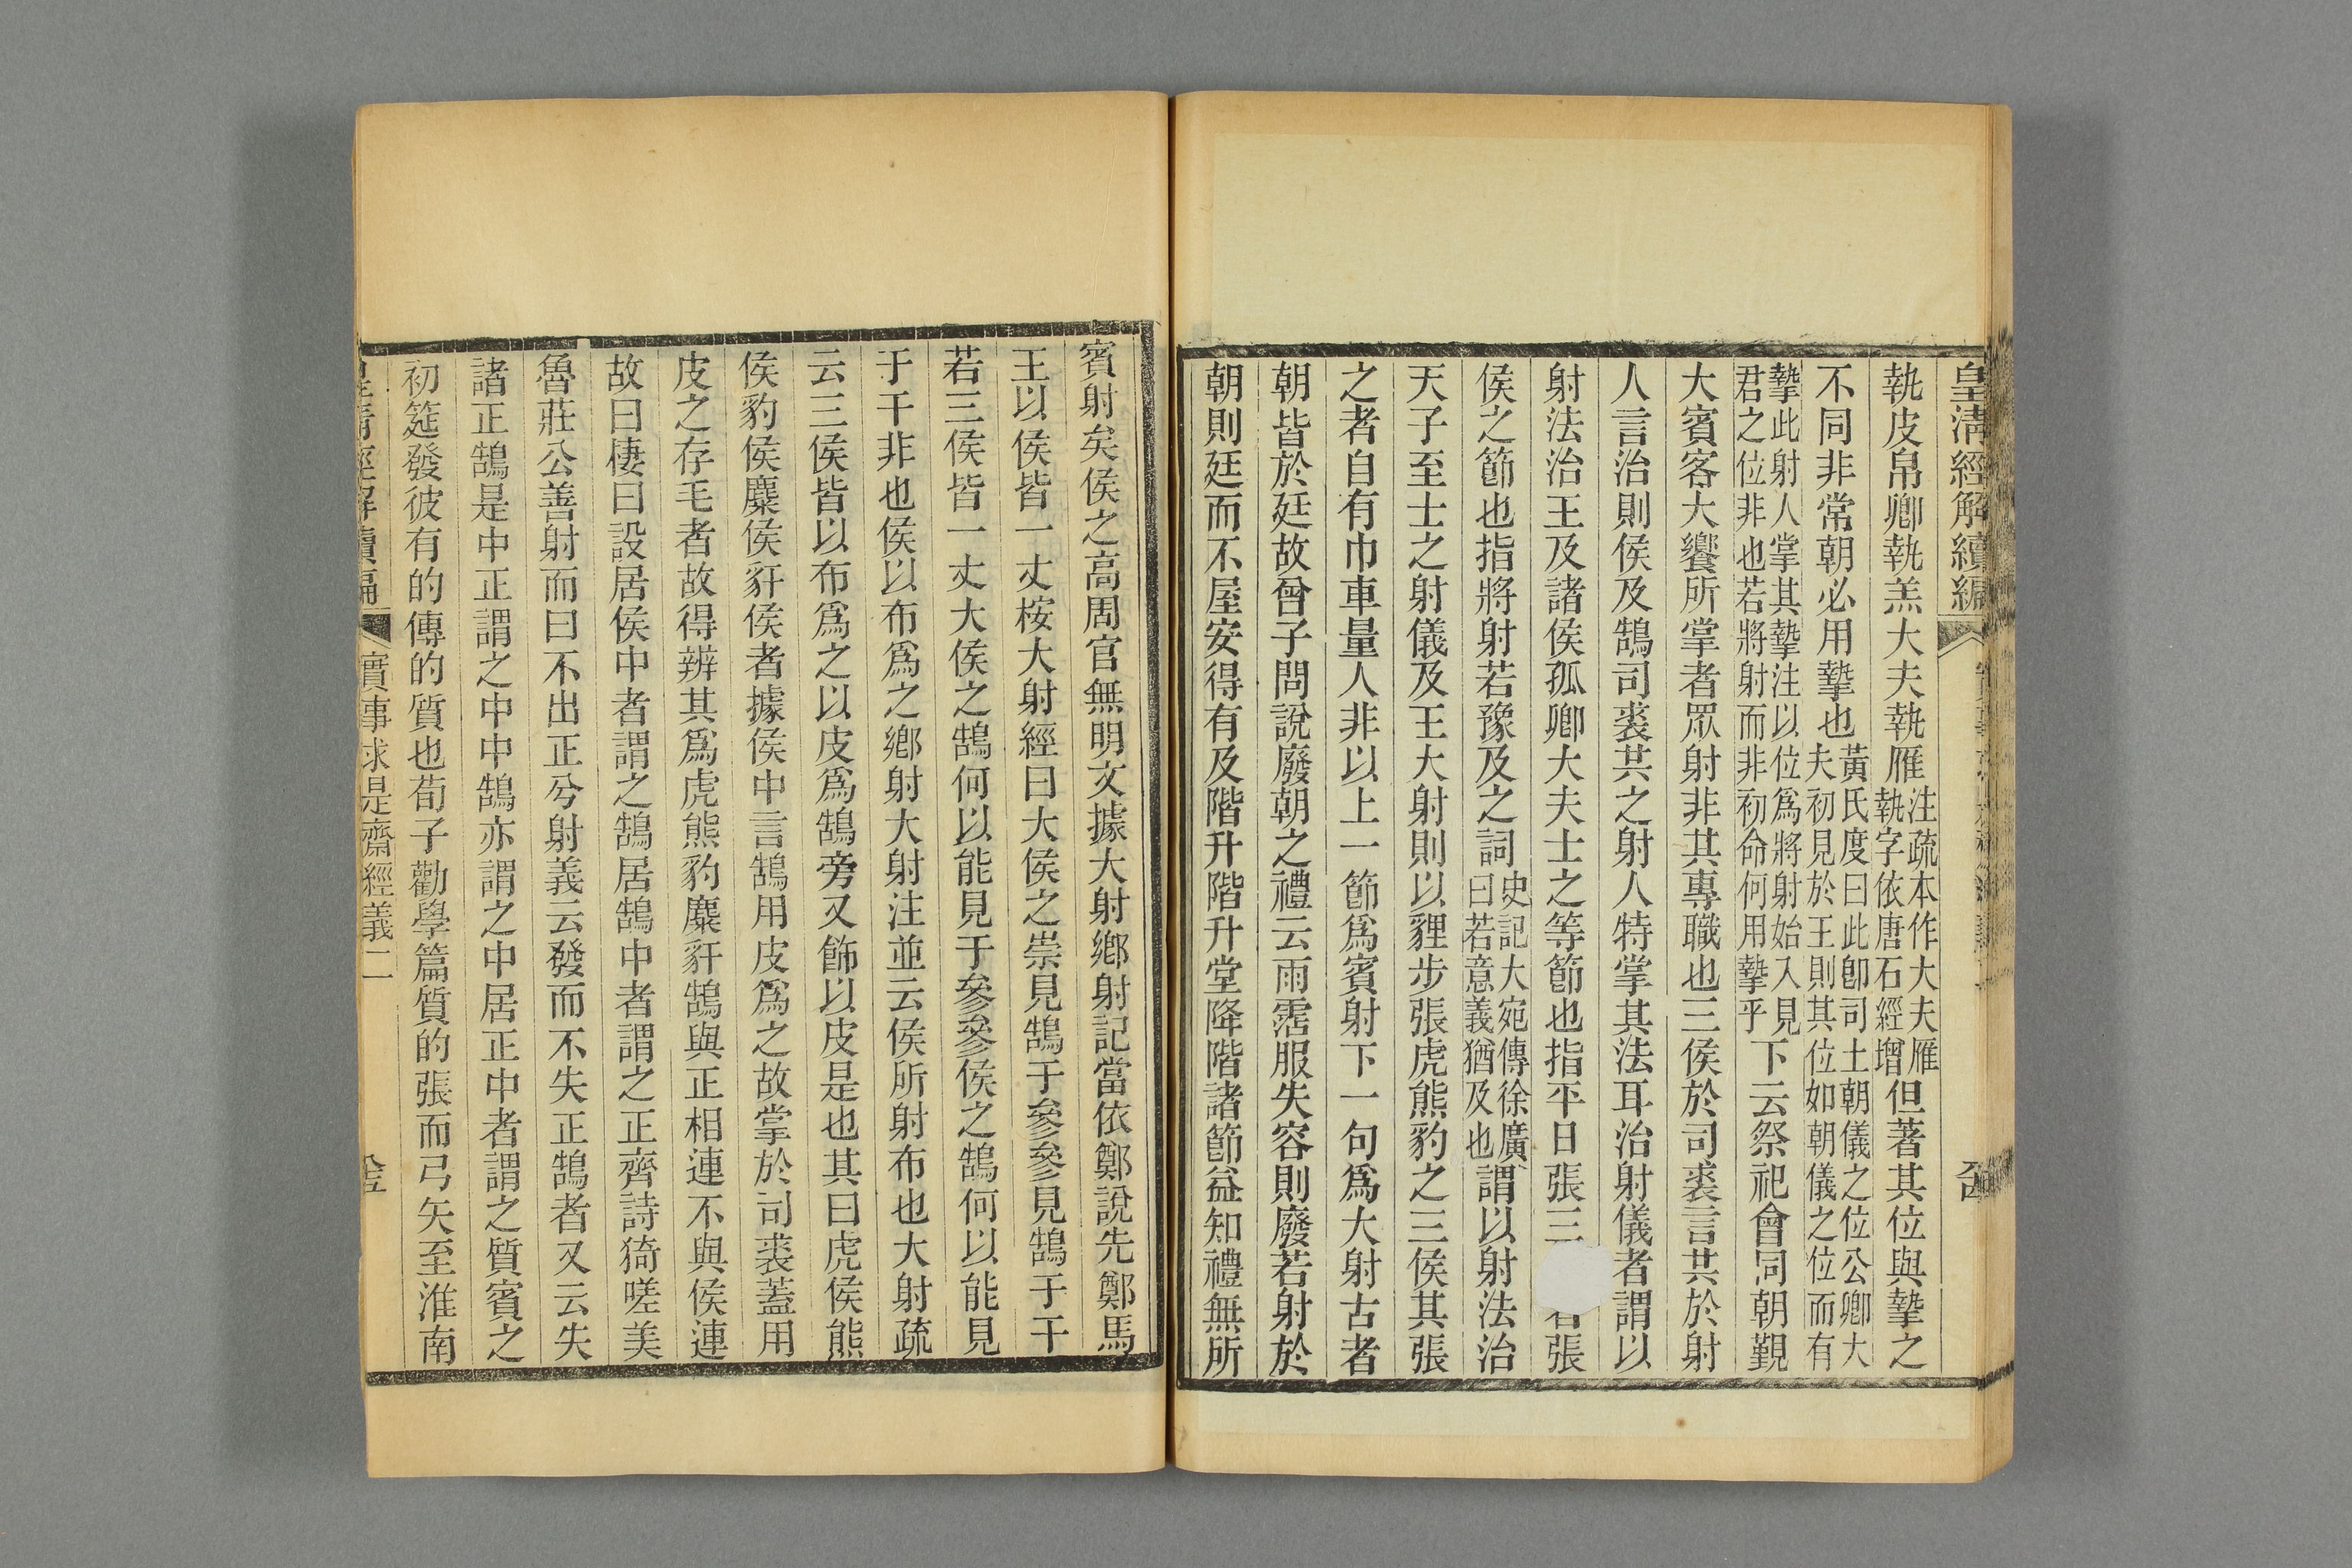 皇清經解續編
執皮帛卿執羔大夫執雁注疏本作大夫雁執字依唐石經增但著其位與摯之
不同非常朝必用摯也黃氏度曰此卽司士朝儀之位公卿大夫初見於王則其位如朝儀之位而有
摯此射人掌其摯注以位爲將射始入見君之位非也若將射而非初命何用摯乎下云祭祀會同朝覲
大賓客大饗所掌者眾射非其專職也三侯於司裘言共於射
人言治則侯及鵠司裘共之射人特掌其法耳治射儀者謂以
射法治王及諸侯孤卿大夫士之等節也指平日張三張
侯之節也指將射若豫及之詞史記大宛傳徐廣曰若意義猶及也謂以射法治
天子至士之射儀及王大射則以貍步張虎熊豹之三侯其張
之者自有巾車量人非以上一節爲賓射下一句爲大射古者
朝皆於廷故曾子問說廢朝之禮云雨霑服失容則廢若射於
朝則廷而不屋安得有及階升階升堂降階諸節益知禮無所
賓射矣侯之高周官無明文據大射鄉射記當依鄭說先鄭馬
王以侯皆一丈桉大射經曰大侯之崇見鵠于參參見鵠于干
若三侯皆一丈大侯之鵠何以能見于參參侯之鵠何以能見
于干非也侯以布爲之鄉射大射注並云侯所射布也大射疏
云三侯皆以布爲之以皮爲鵠旁又飾以皮是也其曰虎侯熊
侯豹侯麋侯豻侯者據侯中言鵠用皮爲之故掌於司裘蓋用
皮之存毛者故得辨其爲虎熊豹麋豻鵠與正相連不與侯連
故曰棲曰設居侯中者謂之鵠居鵠中者謂之正齊詩猗嗟美
魯莊公善射而曰不出正兮射義云發而不失正鵠者又云失
諸正鵠是中正謂之中中鵠亦謂之中居正中者謂之質賓之
初筵發彼有的傳的質也荀子勸學篇質的張而弓矢至淮南
皇清經解續編 實事求是齋經義二 全五